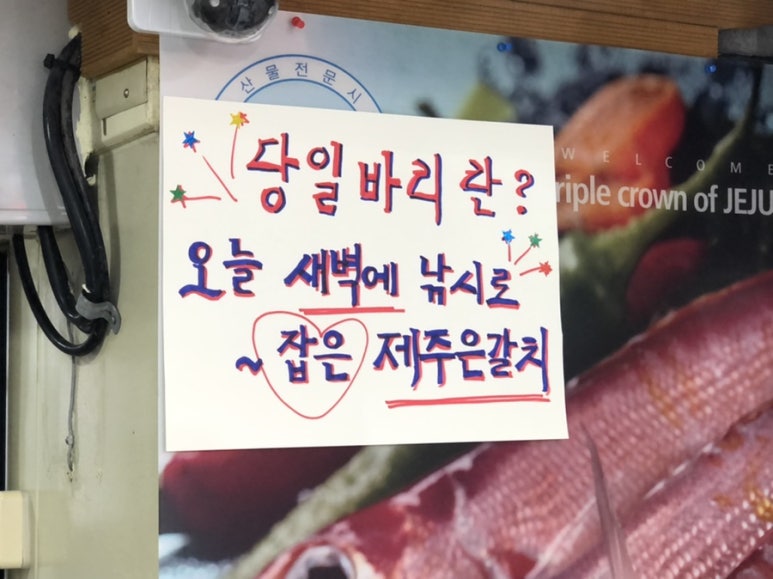 산물전문시
당일바리란?
오늘 새벽에 낚시로
~ 잡은 제주은갈치
WELCOME
riple crown of JEJU